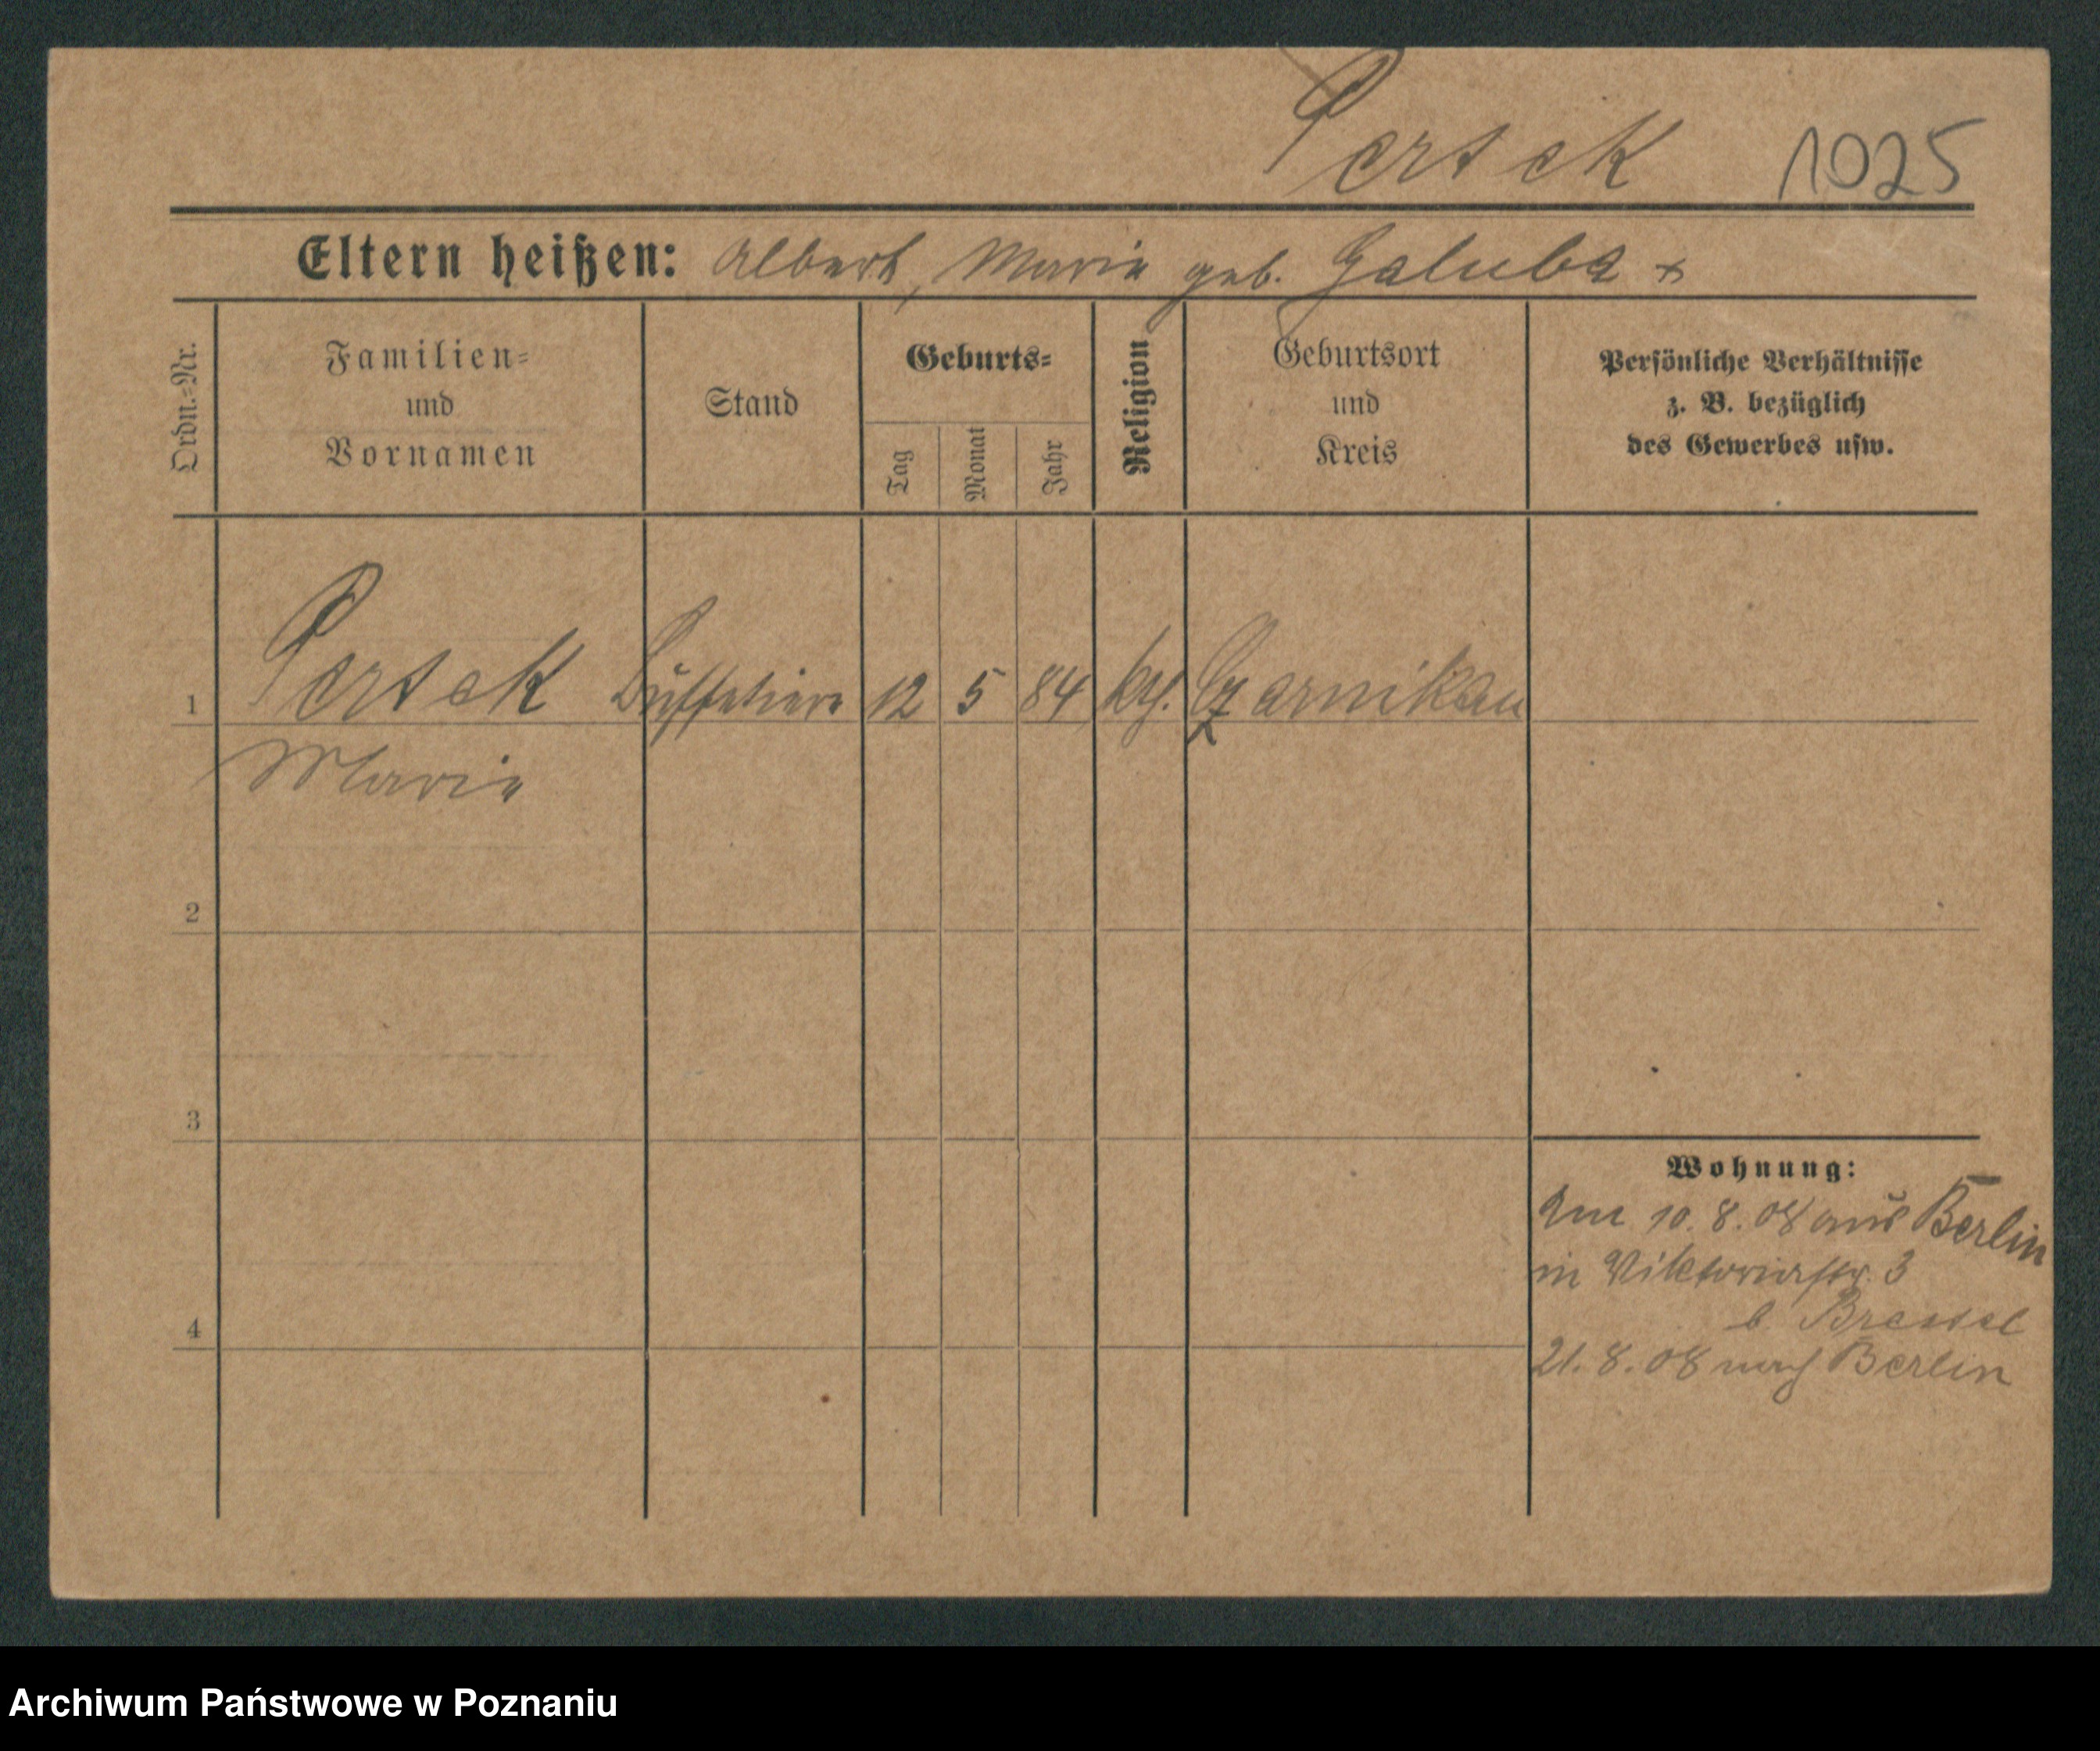 Pertek 1025
Eltern heißen: Albert, Marie geb. Galuba +
Ordn.=Nr.
Familien=
und
Vornamen
Stand
Geburts=
Tag
Monat
Jahr
Religion
Geburtsort
und
Kreis
Persönliche Verhältnisse
z. B. bezüglich
des Gewerbes usw.
1 Pertek Büffetiere 12 5 84 kth. Czarnikau
Marie
2
3
4
Wohnung:
Am 10. 8. 08 aus Berlin
in Viktoriastr. 3
b
21. 8. 08 nach Berlin
Archiwum Państwowe w Poznaniu